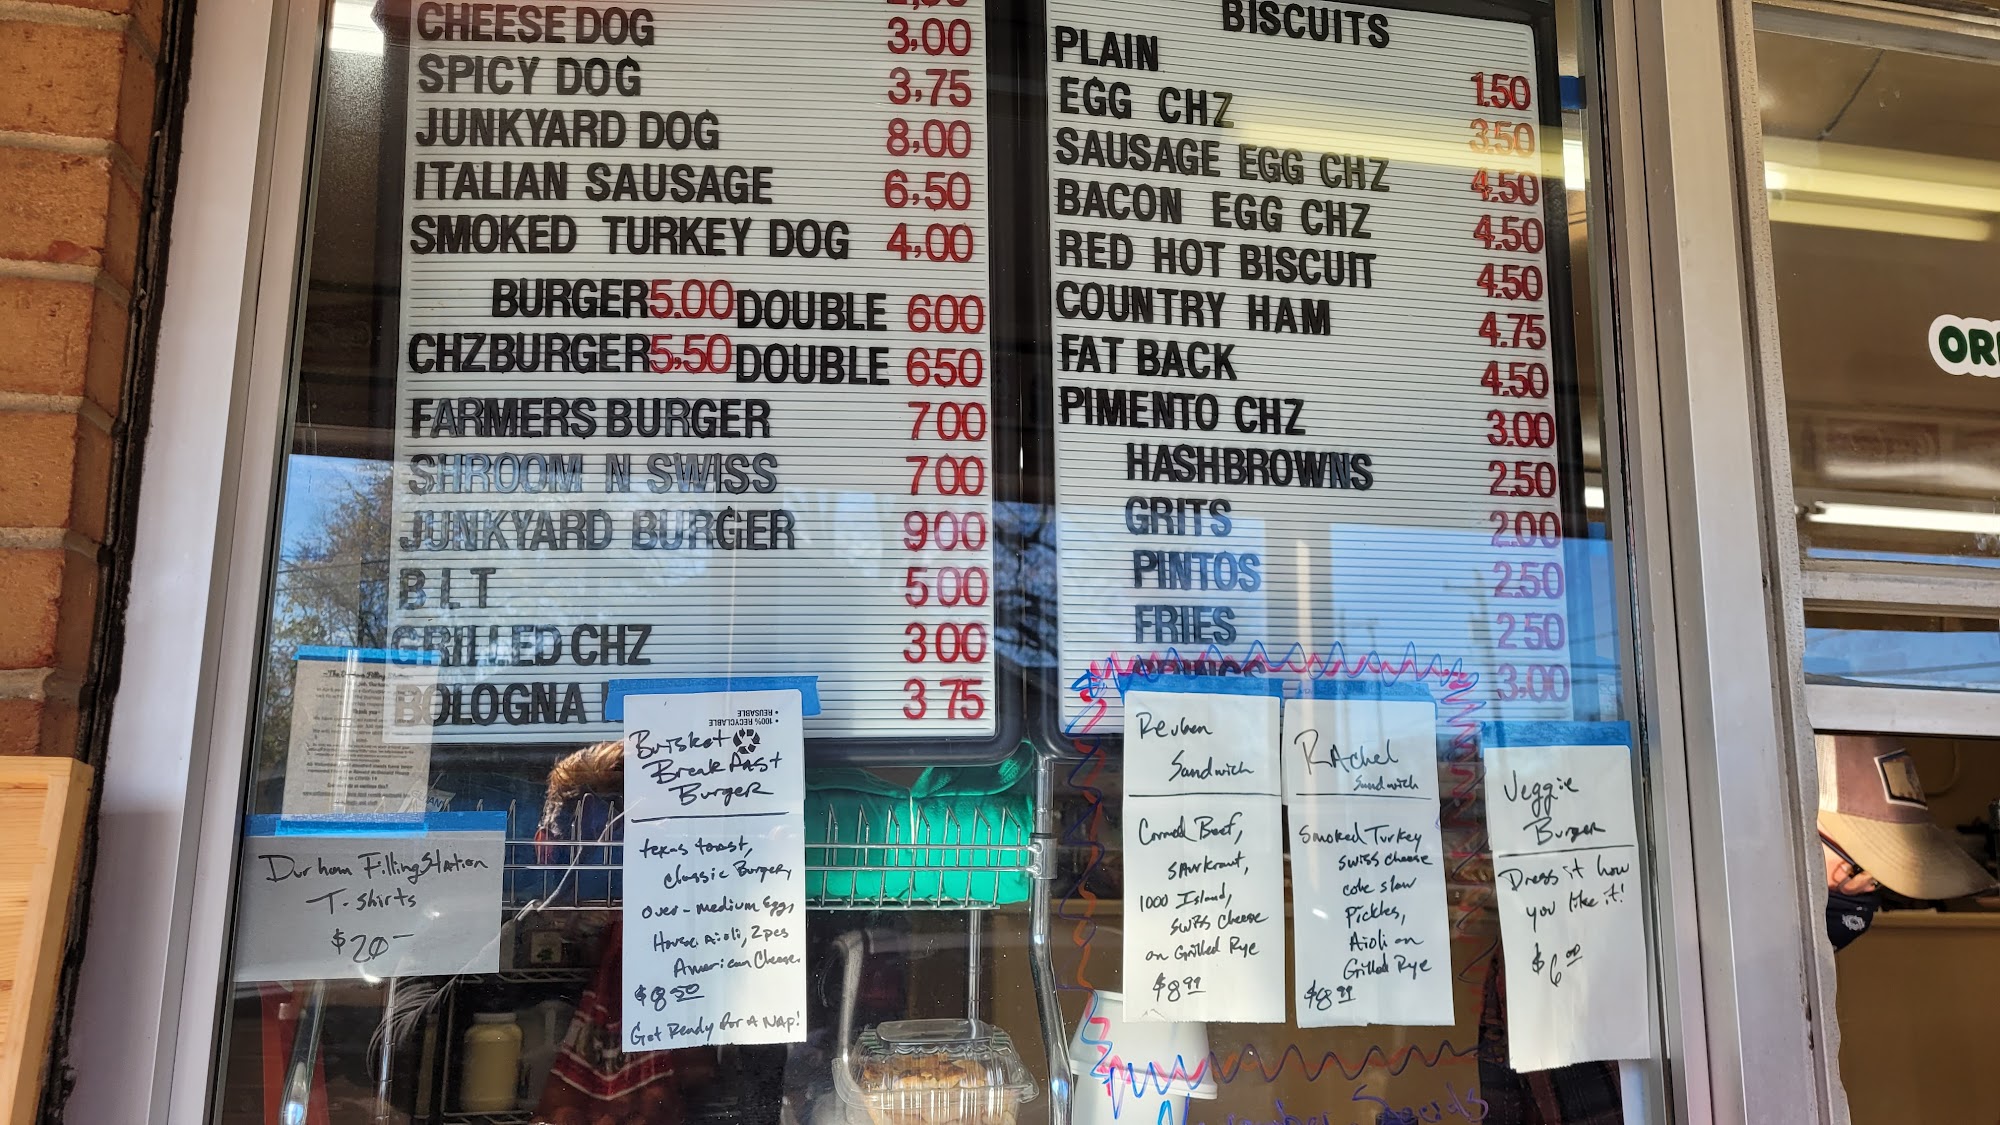 CHEESE DOG 3,00
SPICY DOG 3,75
JUNKYARD DOG 8,00
ITALIAN SAUSAGE 6,50
SMOKED TURKEY DOG 4,00
BURGER 5.00 DOUBLE 600
CHZBURGER 5,50 DOUBLE 650
FARMERS BURGER 700
SHROOM N SWISS 700
JUNKYARD BURGER 900
BLT 500
GRILLED CHZ 300
BOLOGNA 375
BISCUITS
PLAIN 1.50
EGG CHZ 3.50
SAUSAGE EGG CHZ 4.50
BACON EGG CHZ 4.50
RED HOT BISCUIT 4.50
COUNTRY HAM 4.75
FAT BACK 4.50
PIMENTO CHZ 3.00
HASHBROWNS 2.50
GRITS 2.00
PINTOS 2.50
FRIES 2.50
3,00
Durham Filling Station
T-Shirts
$20
• 100% RECYCLABLE
• REUSABLE
Brisket
Breakfast
Burger
texas toast,
classic Burger,
over-medium egg,
House Aioli, 2pcs
American Cheese.
$8.50
Get Ready for A NAp!
Reuben
Sandwich
Corned Beef,
SAurkraut,
1000 Island,
Swiss Cheese
on Grilled Rye
$8.99
RAchel
Sandwich
Smoked Turkey
Swiss cheese
cole slaw
Pickles,
Aioli on
Grilled Rye
$8.99
Veggie
Burger
Dress it how
you like it!
$6.00
Specials
OR